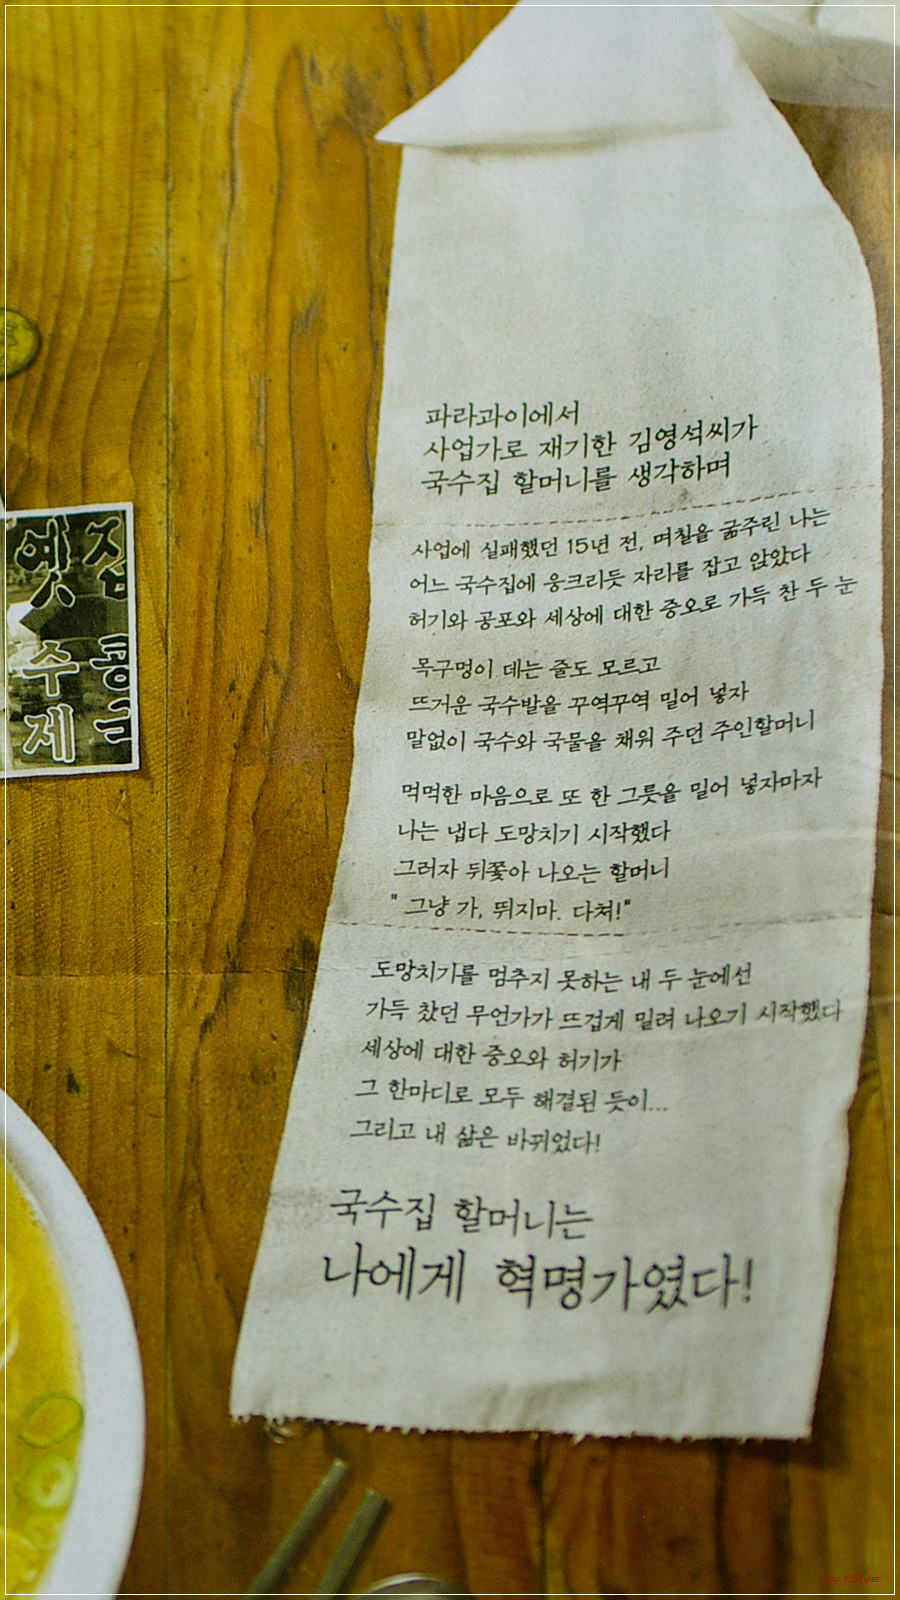 파라과이에서
사업가로 재기한 김영석씨가
국수집 할머니를 생각하며
사업에 실패했던 15년 전, 며칠을 굶주린 나는
어느 국수집에 웅크리듯 자리를 잡고 앉았다
허기와 공포와 세상에 대한 증오로 가득 찬 두 눈
목구멍이 데는 줄도 모르고
뜨거운 국수발을 꾸역꾸역 밀어 넣자
말없이 국수와 국물을 채워 주던 주인할머니
먹먹한 마음으로 또 한 그릇을 밀어 넣자마자
나는 냅다 도망치기 시작했다
그러자 뒤쫓아 나오는 할머니
" 그냥 가, 뛰지마. 다쳐!"
도망치기를 멈추지 못하는 내 두 눈에선
가득 찼던 무언가가 뜨겁게 밀려 나오기 시작했다
세상에 대한 증오와 허기가
그 한마디로 모두 해결된 듯이...
그리고 내 삶은 바뀌었다!
국수집 할머니는
나에게 혁명가였다!
옛 집
수 콩
제 국